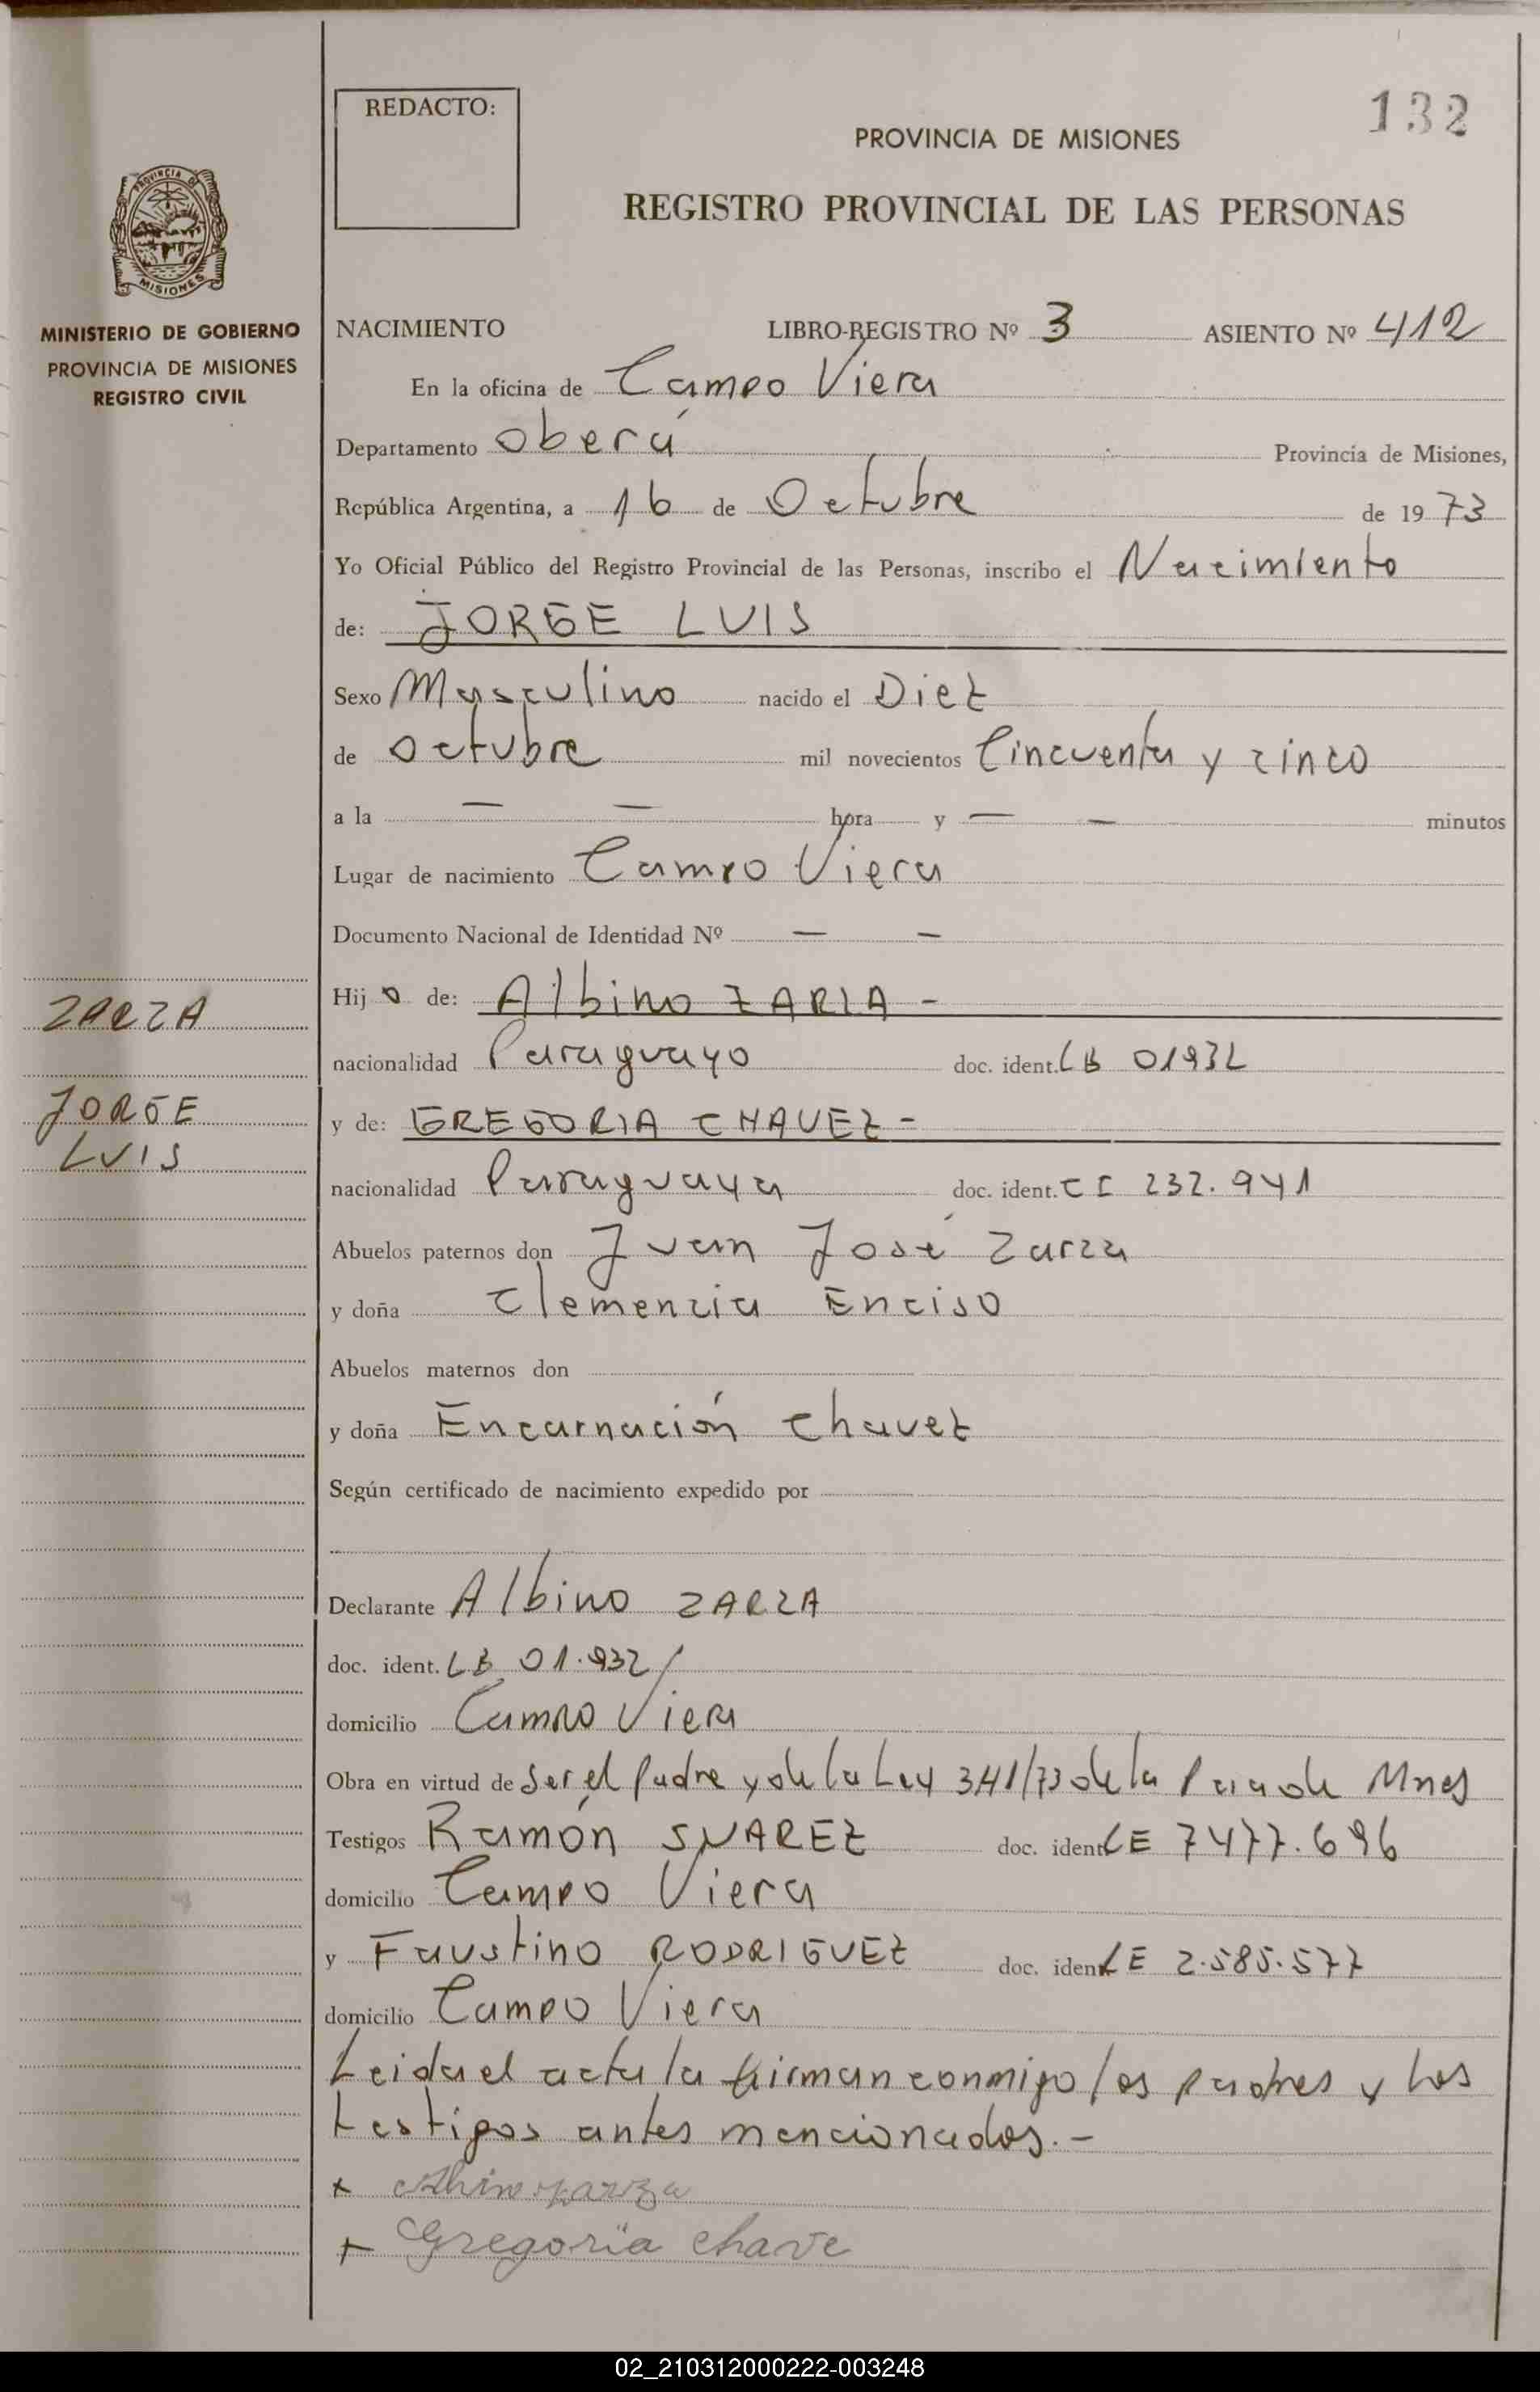 132
REDACTO:
PROVINCIA DE MISIONES
REGISTRO PROVINCIAL DE LAS PERSONAS
PROVINCIA DE
MISIONES
MINISTERIO DE GOBIERNO
PROVINCIA DE MISIONES
REGISTRO CIVIL
NACIMIENTO LIBRO-REGISTRO Nº 3 ASIENTO Nº 412
En la oficina de Campo Viera
Departamento Oberá Provincia de Misiones,
República Argentina, a 16 de Octubre de 1973
Yo Oficial Público del Registro Provincial de las Personas, inscribo el Nacimiento
de: JORGE LUIS
Sexo Masculino nacido el Diez
de octubre mil novecientos Cincuenta y cinco
a la — — hora y — — minutos
Lugar de nacimiento Campo Viera
Documento Nacional de Identidad Nº — —
ZARZA
JORGE
LUIS
Hijo de: Albino ZARZA -
nacionalidad Paraguayo doc. ident. LB 01932
y de: GREGORIA CHAVEZ -
nacionalidad Paraguaya doc. ident. CI 232.941
Abuelos paternos don Juan José Zarza
y doña Clemencia Enciso
Abuelos maternos don
y doña Encarnación Chavez
Según certificado de nacimiento expedido por
Declarante Albino ZARZA
doc. ident. LB 01.932/
domicilio Campo Viera
Obra en virtud de Ser el Padre y de la Ley 341/73 de la Pcia de Mnes
Testigos Ramón SUAREZ doc. ident LE 7477.696
domicilio Campo Viera
y Faustino RODRIGUEZ doc. ident LE 2.585.577
domicilio Campo Viera
Leida el acta la firman conmigo los padres y los
testigos antes mencionados.-
+ Albino zarza
+ Gregoria chave
02_210312000222-003248